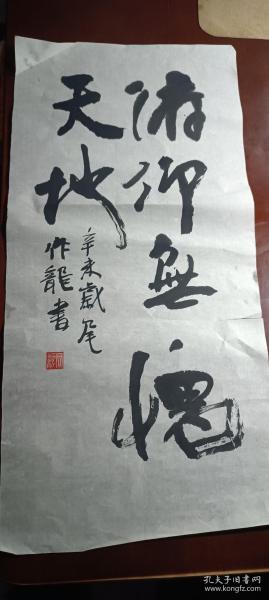 俯仰無愧
天地
辛未歲尾
作龍書
孔夫子旧书网
www.kongfz.com